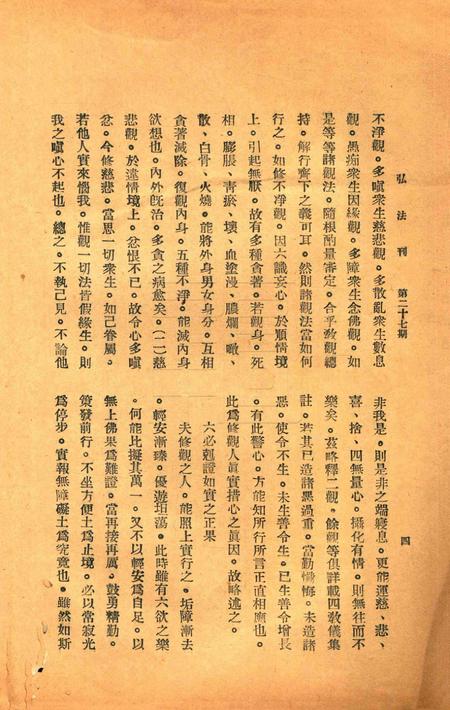 弘法刊　第二十七期　四
不淨觀。多嗔衆生慈悲觀。多散亂衆生數息
觀。愚痴衆生因緣觀。多障衆生念佛觀。如
是等等諸觀法。隨根酌量審定。合乎敎觀總
持。解行齊下之義可耳。然則諸觀法當如何
行之。如修不淨觀。因六識妄心。於順情境
上。引起無厭。故有多種貪著。若觀身。死
相。膨脹、靑瘀、壞、血塗漫、膿爛、噉、
散、白骨、火燒。能將外身男女身分。互相
貪著滅除。復觀內身。五種不淨。能滅內身
欲想也。內外旣治。多貪之病愈矣。（二）慈
悲觀。於違情境上。忿恨不已。故令心多嗔
忿。今修慈悲。當思一切衆生。如己眷屬。
若他人實來惱我。惟觀一切法皆假緣生。則
我之嗔心不起也。總之。不執己見。不論他
非我是。則是非之端寢息。更能運慈、悲、
喜、捨、四無量心。攝化有情。則無往而不
樂矣。茲略釋二觀。餘觀等俱詳載四敎儀集
註。若其已造諸黑過重。當勤懺悔。未造諸
惡。使令不生。未生善令生。已生善令增長
。有此警心。方能知所行所言正直相應也。
此爲修觀人眞實措心之眞因。故略述之。
六必剋證如實之正果
夫修觀之人。能照上實行之。垢障漸去
。輕安漸臻。優遊坦蕩。此時雖有六欲之樂
。何能比擬其萬一。又不以輕安爲自足。以
無上佛果爲難證。當再接再厲。鼓勇精勤。
策發前行。不坐方便土爲止境。必以常寂光
爲停步。實報無障礙土爲究竟也。雖然如斯